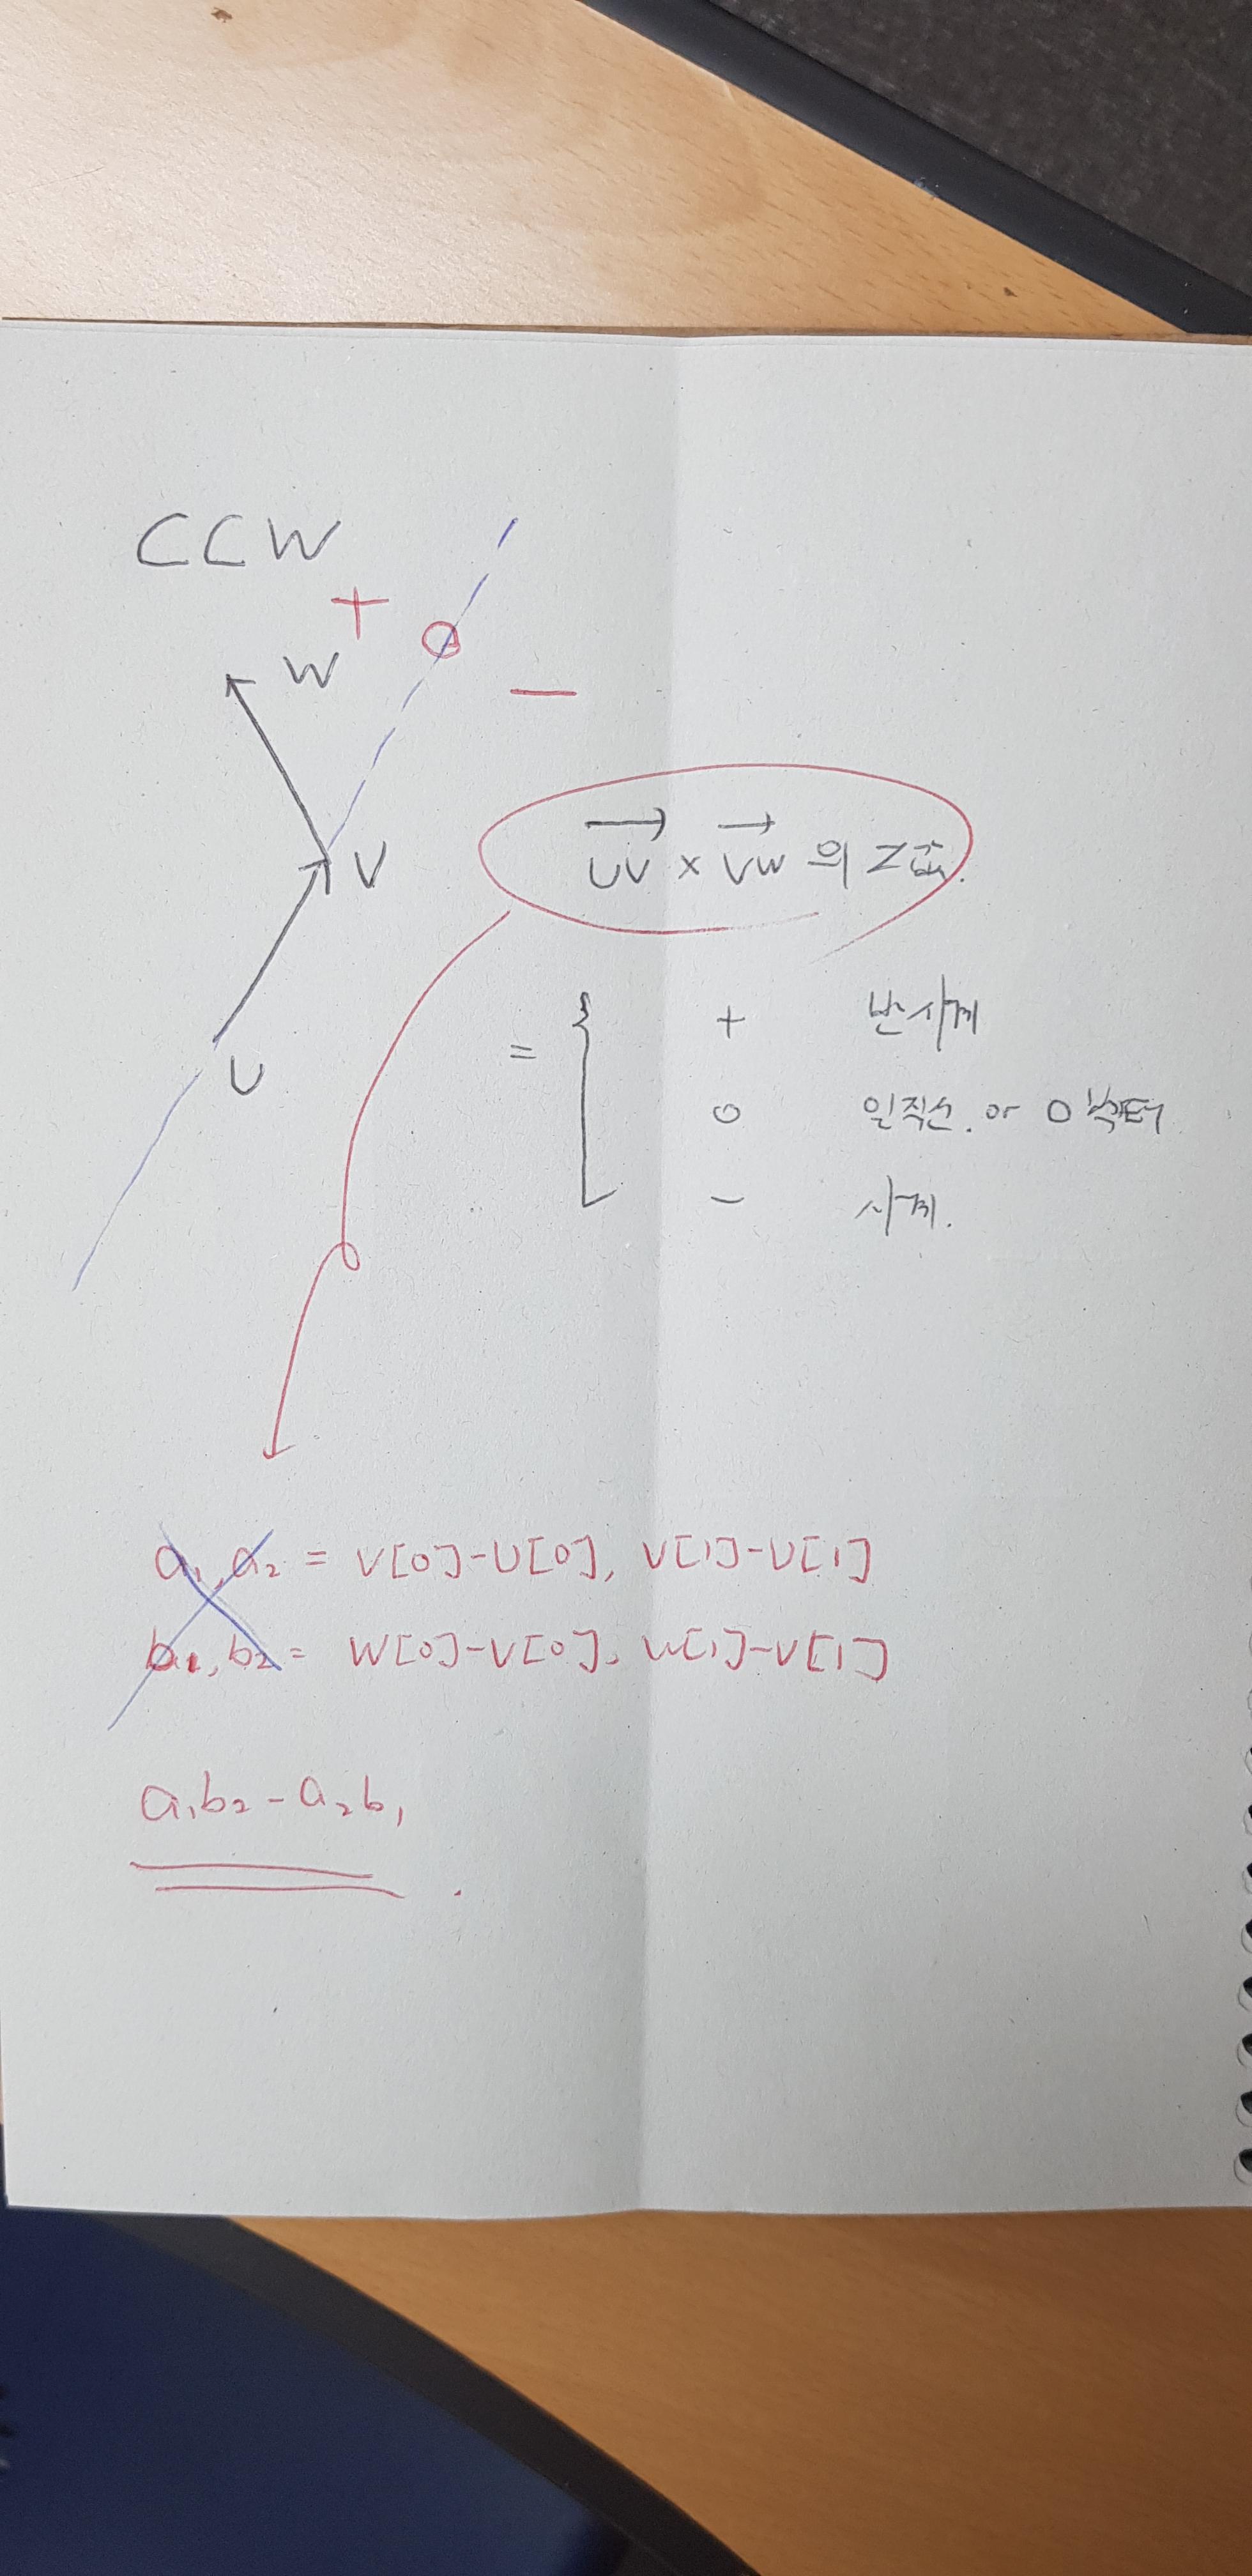 CCW
+
0
W
−
V
UV × VW 의 Z값.
U
= { + 반시계
0 일직선. or 0벡터
− 시계.
a₁, a₂ = V[0]-U[0], V[1]-U[1]
b₁, b₂ = W[0]-V[0], W[1]-V[1]
a₁b₂ - a₂b₁